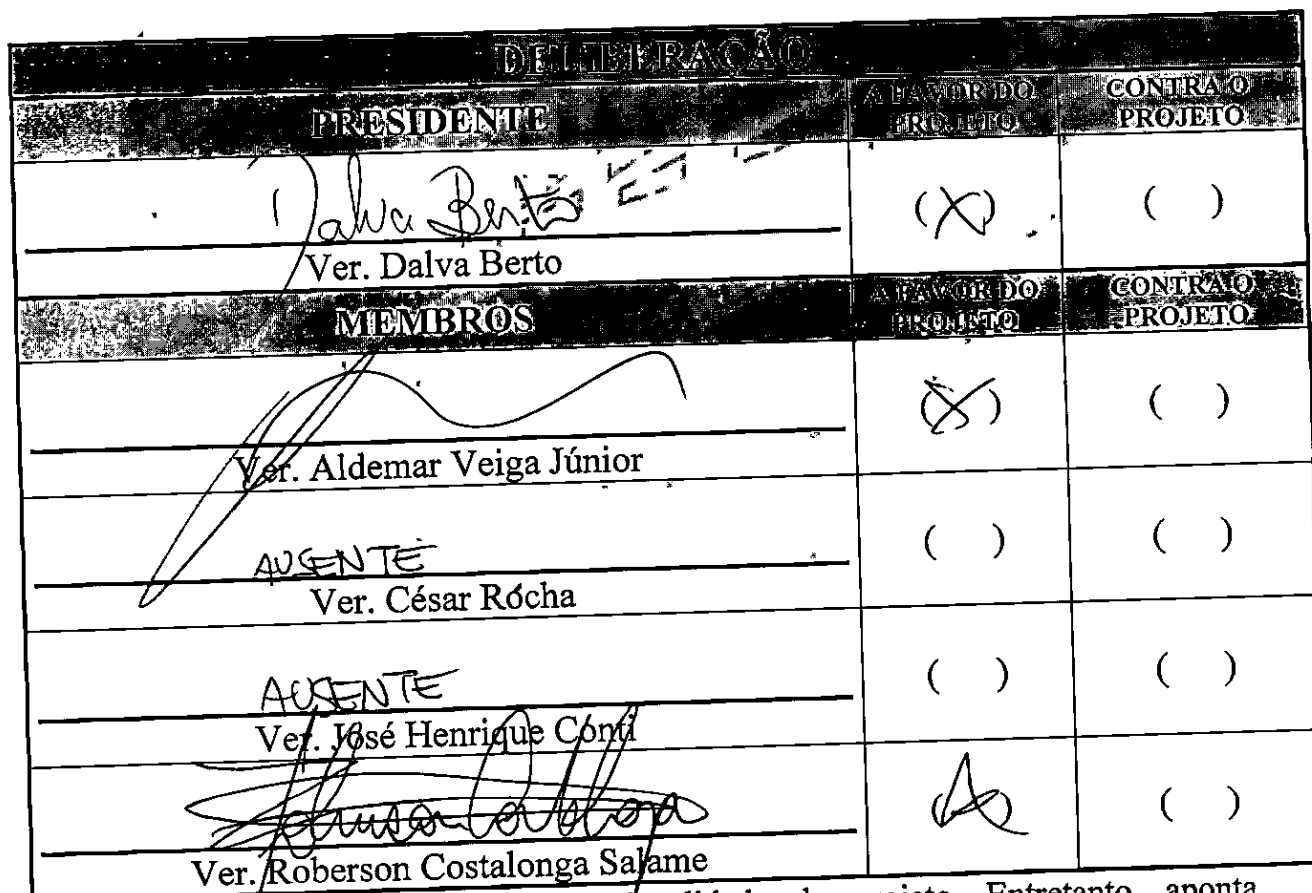 DELIBERAÇÃO
PRESIDENTE A FAVOR DO PROJETO CONTRA O PROJETO
Dalva Berto (X) ( )
Ver. Dalva Berto
MEMBROS A FAVOR DO PROJETO CONTRA O PROJETO
(X) ( )
Ver. Aldemar Veiga Júnior
AUSENTE ( ) ( )
Ver. César Rocha
AUSENTE ( ) ( )
Ver. José Henrique Conti
( )
Ver. Roberson Costalonga Salame
projeto. Entretanto aponta